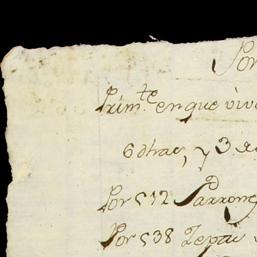 Por
Prim.te en que viv
6 dhas, y 3 R
Por 512 Parrons
Por 538 Zepas